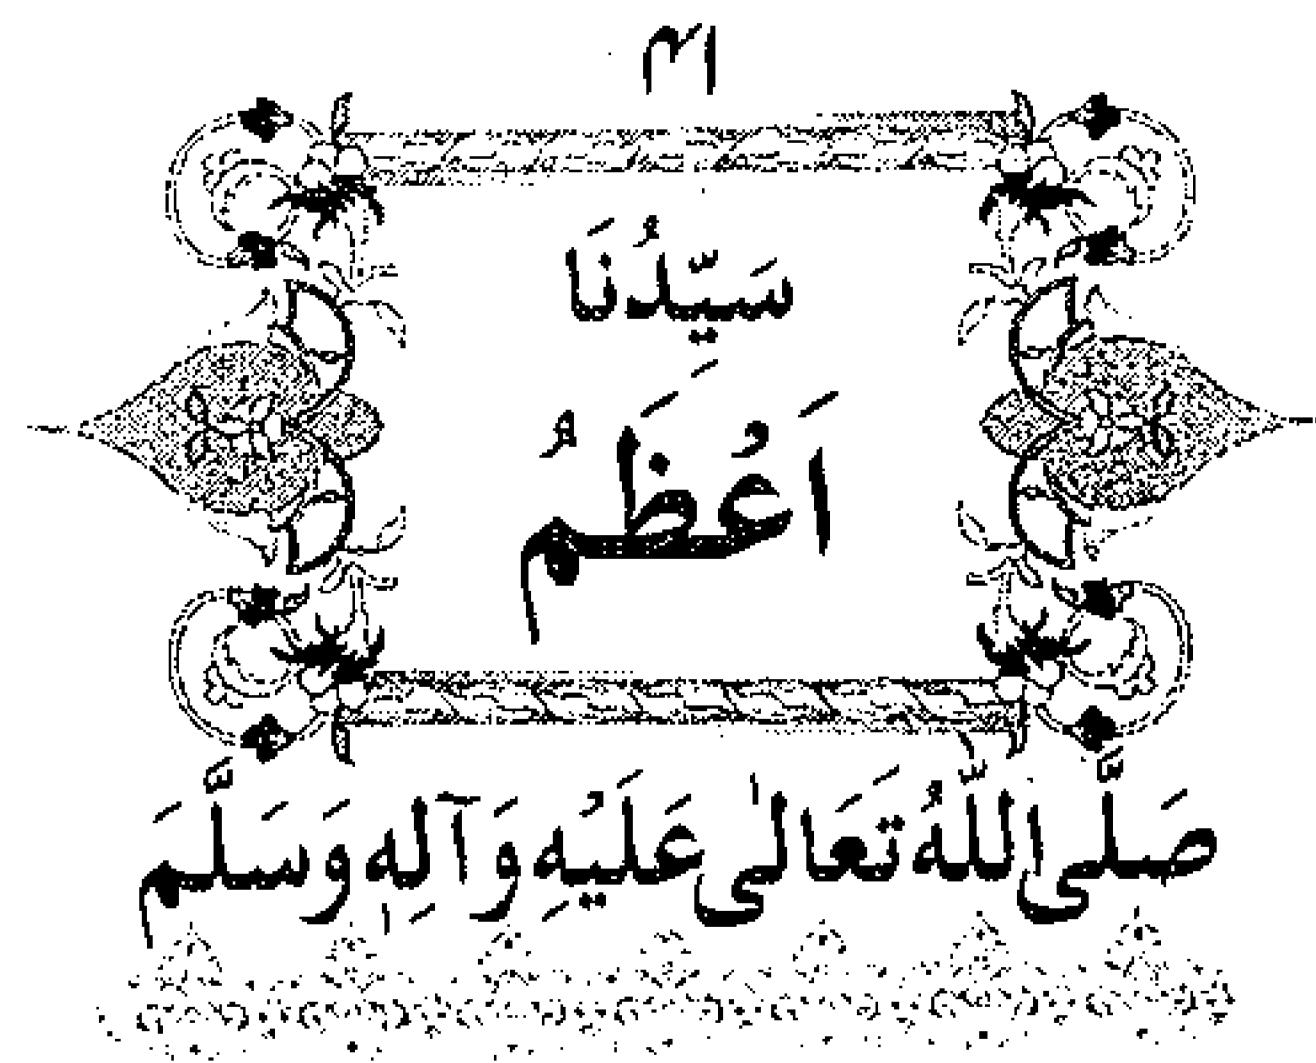 ۳۱
سَيِّدُنَا
اَعْظَمُ
صَلَّى اللّٰهُ تَعَالٰى عَلَيْهِ وَآلِهٖ وَسَلَّمَ